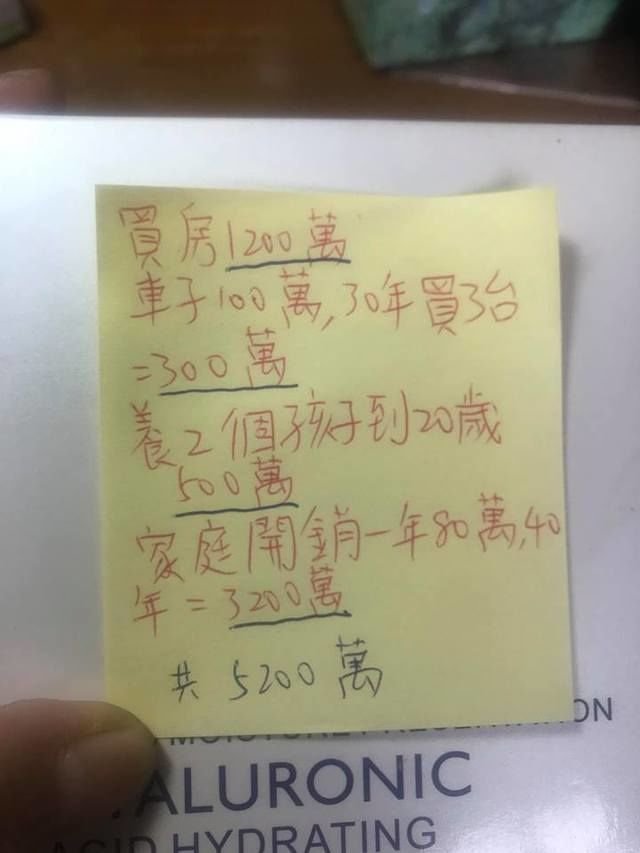 買房1200萬
車子100萬,30年買3台
=300萬
養2個孩子到20歲
500萬
家庭開銷一年80萬,40
年=3200萬
共5200萬
ON
ALURONIC
ACID HYDRATING